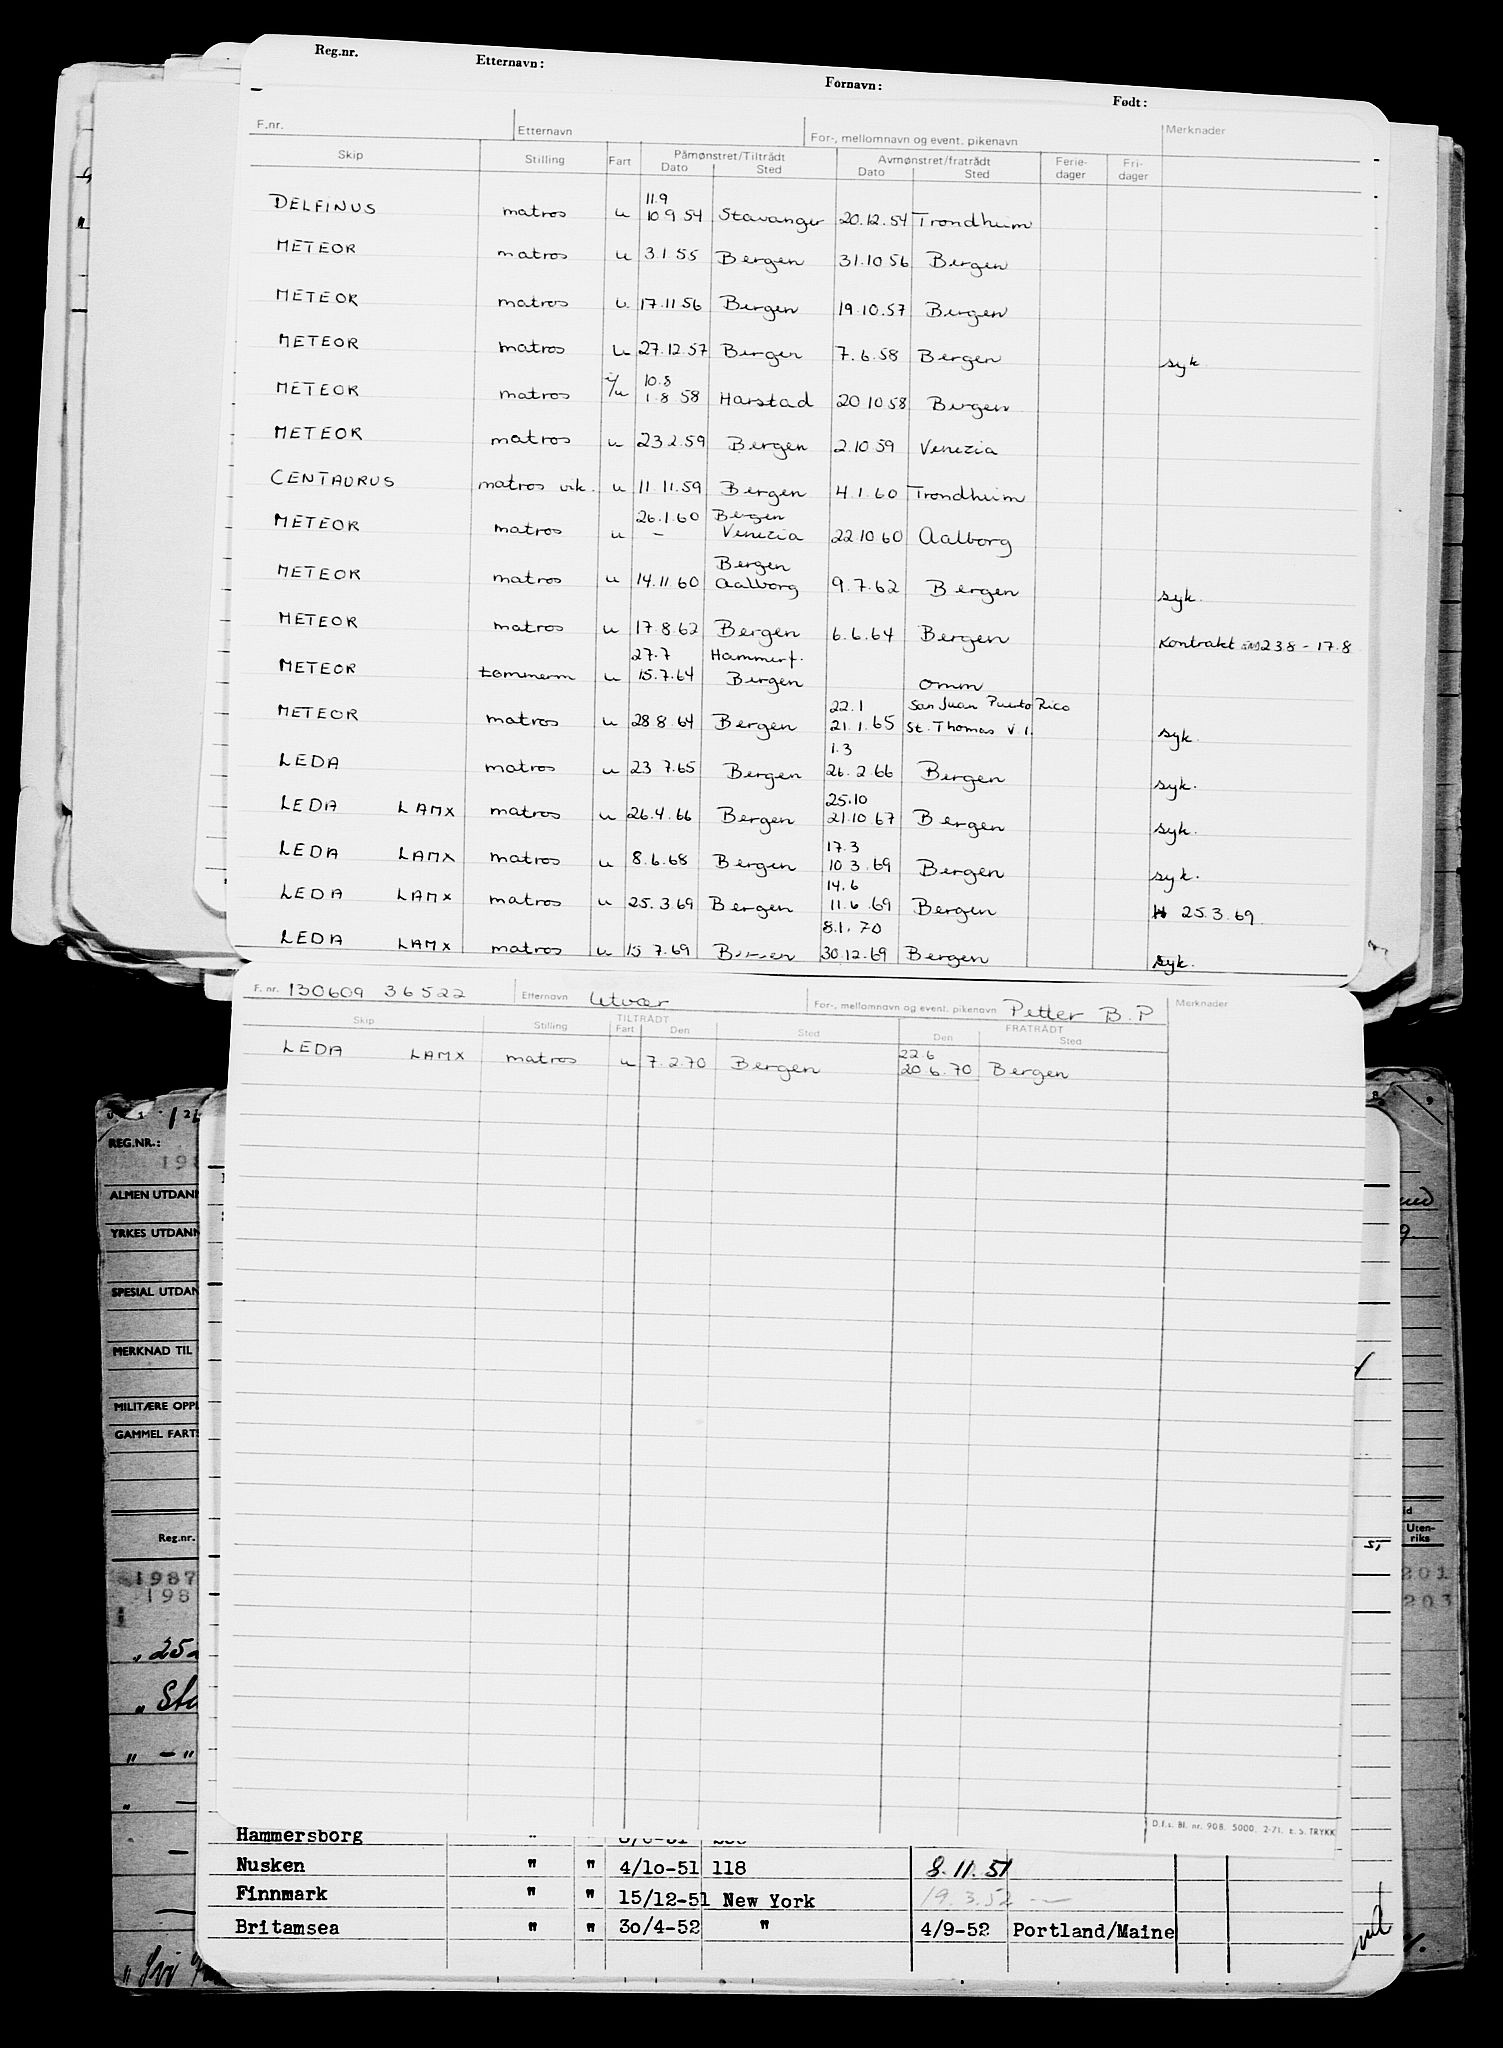 Reg.nr. Etternavn: Fornavn: Født:
F.nr. Etternavn For-, mellomnavn og event. pikenavn Merknader
Skip Stilling Fart Påmønstret/Tiltrådt Avmønstret/fratrådt Ferie- Fri-
Dato Sted Dato Sted dager dager
11.9
DELFINUS matros u 10 9 54 Stavanger 20.12.54 Trondheim
METEOR matros u 3.1.55 Bergen 31.10 56 Bergen
METEOR matros u 17.11 56 Bergen 19.10.57 Bergen
METEOR matros u 27.12.57 Bergen 7.6.58 Bergen syk.
10.8
METEOR matros i/u 1.8 58 Harstad 20 10 58 Bergen
METEOR matros u 23 2.59 Bergen 2.10 59 Venezia
CENTAURUS matros vik. u 11.11.59 Bergen 4.1.60 Trondheim
26.1.60 Bergen
METEOR matros u – Venezia 22 10 60 Aalborg
Bergen
METEOR matros u 14.11.60 Aalborg 9.7.62 Bergen syk.
METEOR matros u 17.8.62 Bergen 6.6.64 Bergen Kontrakt 23 8 - 17.8
27.7 Hammerf.
METEOR tømmerm u 15.7.64 Bergen omm
22.1 San Juan Puerto Rico
METEOR matros u 28 8.64 Bergen 21.1.65 St. Thomas V.I. syk.
1.3
LEDA matros u 23 7.65 Bergen 26.2.66 Bergen syk.
25.10
LEDA LAMX matros u 26.4.66 Bergen 21.10 67 Bergen syk.
17.3
LEDA LAMX matros u 8.6.68 Bergen 10 3.69 Bergen syk.
14.6
LEDA LAMX matros u 25.3 69 Bergen 11.6.69 Bergen 25.3.69
8.1.70
LEDA LAMX matros u 15 7.69 Bergen 30.12.69 Bergen syk.
F. nr. 130609 36522 Etternavn Utvær For-, mellomnavn og event. pikenavn Petter B.P Merknader
Skip Stilling TILTRÅDT FRATRÅDT
Fart Den Sted Den Sted
22.6
LEDA LAMX matros u 7.2.70 Bergen 20 6.70 Bergen
0 1 8 9
REG.NR.:
198
ALMEN UTDAN
YRKES UTDANN
SPESIAL UTDAN
MERKNAD TIL
MILITÆRE OPPL
GAMMEL FARTS
Reg.nr. Uten-
riks
1987 201
198 203
D.f.s. Bl. nr. 908. 5000. 2-71. E.S. TRYKK
Hammersborg "
Nusken " " 4/10-51 118 8.11.51
Finnmark " " 15/12-51 New York 19.3.52 –
Britamsea " " 30/4-52 " 4/9-52 Portland/Maine